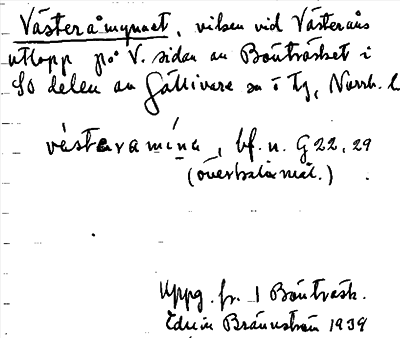 Västeråmynnet, viken vid Västeråns
utlopp på V. sidan av Bönträsket i
SO delen av Gällivare sn i Ty, Norrb. l
västeramina, bf. n. G 22, 29
(överkalixmål.)
Uppg. fr. I Bönträsk.
Edvin Brännström 1939